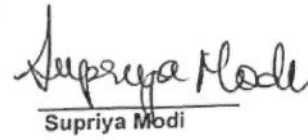 Supriya Modi
Supriya Modi